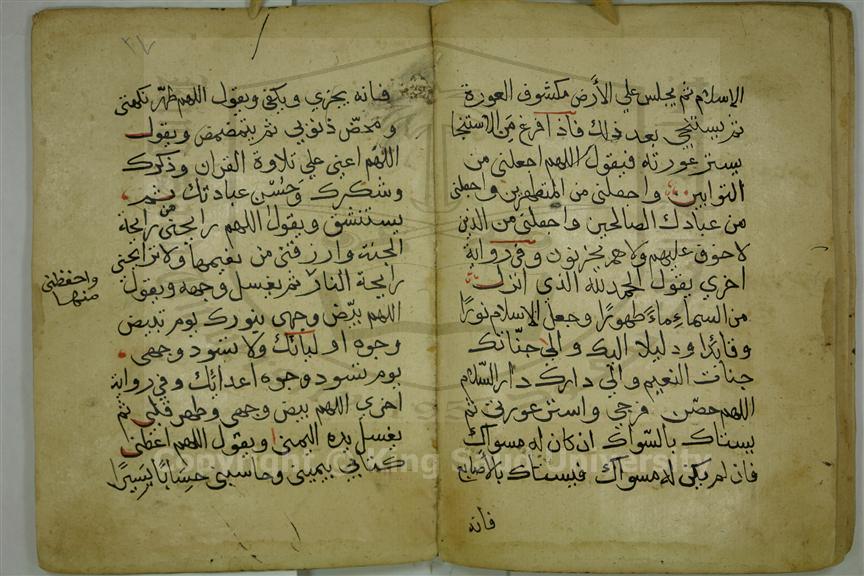 الإسلام ثم يجلس علي الأرض مكشوف العورة
ثم يستنجي بعد ذلك فاذا فرغ من الاستنجا
يستر عورته فيقول اللهم اجعلني من
التوابين واجعلني من المتطهرين واجعلني
من عبادك الصالحين واجعلني من الذين
لا خوف عليهم ولا هم يحزنون وفي رواية
اخري يقول الحمد لله الذي انزل
من السماء ماءً طهورًا وجعل الاسلام نورًا
وقائدًا ودليلا اليك والي جنّاتك
جنات النعيم والي دارك دار السّلام
اللهم حصّن فرجي واستر عورتي ثم
يستاك بالسّواك ان كان له مسواك
فان لم يكن له مسواك فيستاك بالأصابع
فانه
٢٧
فانه يجزي ويكفي ويقول اللهم طهّر نكهتي
ومحّص ذنوبي ثم يتمضمض ويقول
اللهم اعني علي تلاوة القران وذكرك
وشكرك وحُسْن عبادتك ثم
يستنشق ويقول اللهم ارحني من رايحة
الجنة وارزقني من نعيمها ولا ترايحني
رايحة النار ثم يغسل وجهه ويقول
واحفظني
منها
اللهم بيّض وجهي بنورك يوم تبيض
وجوه اوليائك ولا تسود وجهي
يوم تسود وجوه اعدائك وفي رواية
اخري اللهم بيض وجهي وطهر قلبي ثم
يغسل يده اليمني ويقول اللهم اعطني
كتابي بيميني وحاسبني حسابًا يَسِيرًا
Copyright © King Saud University
1957